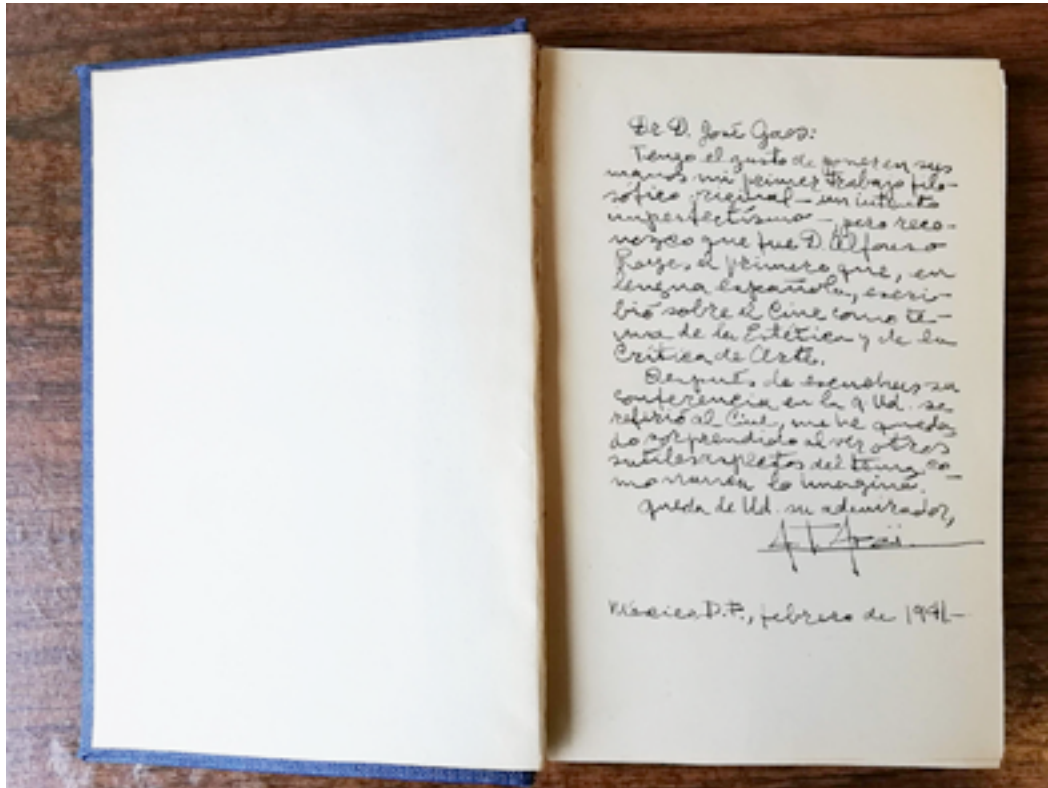 Dr. D. José Gaos:
Tengo el gusto de poner en sus
manos mi primer trabajo filo-
sófico original — un intento
imperfectísimo — pero reco-
nozco que fue D. Alfonso
Reyes el primero que, en
lengua española, escri-
bió sobre el Cine como te-
ma de la Estética y de la
Crítica de Arte.
Después de escuchar su
conferencia en la q Ud. se
refirió al Cine, me he queda-
do sorprendido al ver otros
sutiles aspectos del tema co-
mo nunca lo imaginé.
Queda de Ud. su admirador,
A. T. Arai.
México D.F., febrero de 1941—